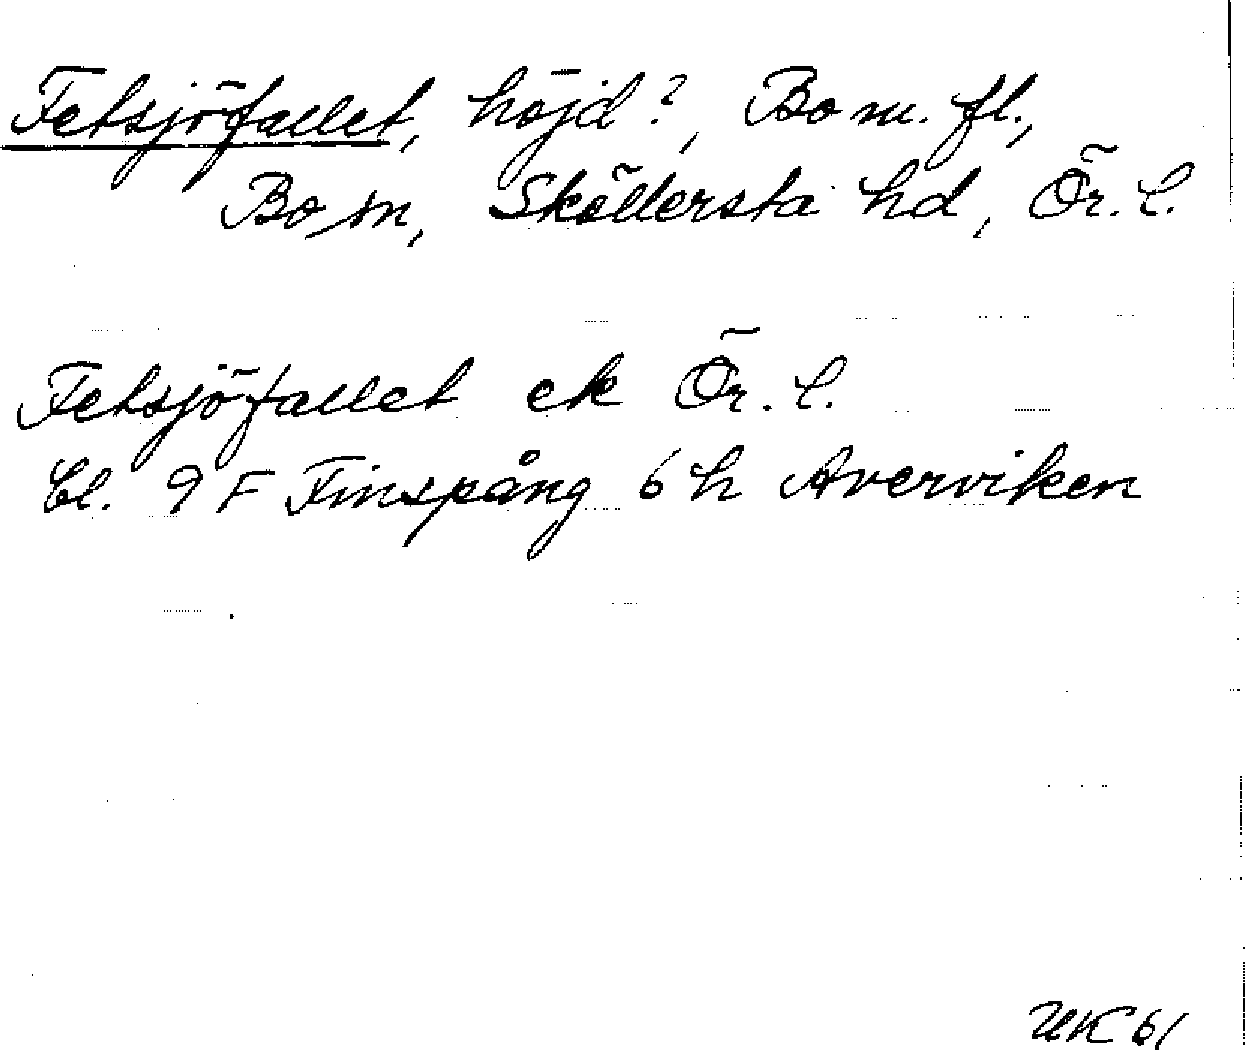 Fetsjöfallet, höjd?, Bo m. fl.,
Bo sn, Sköllersta hd, Ör. l.
Fetsjöfallet ek Ör. l.
bl. 9 F Finspång 6 h Averviken
UK 61